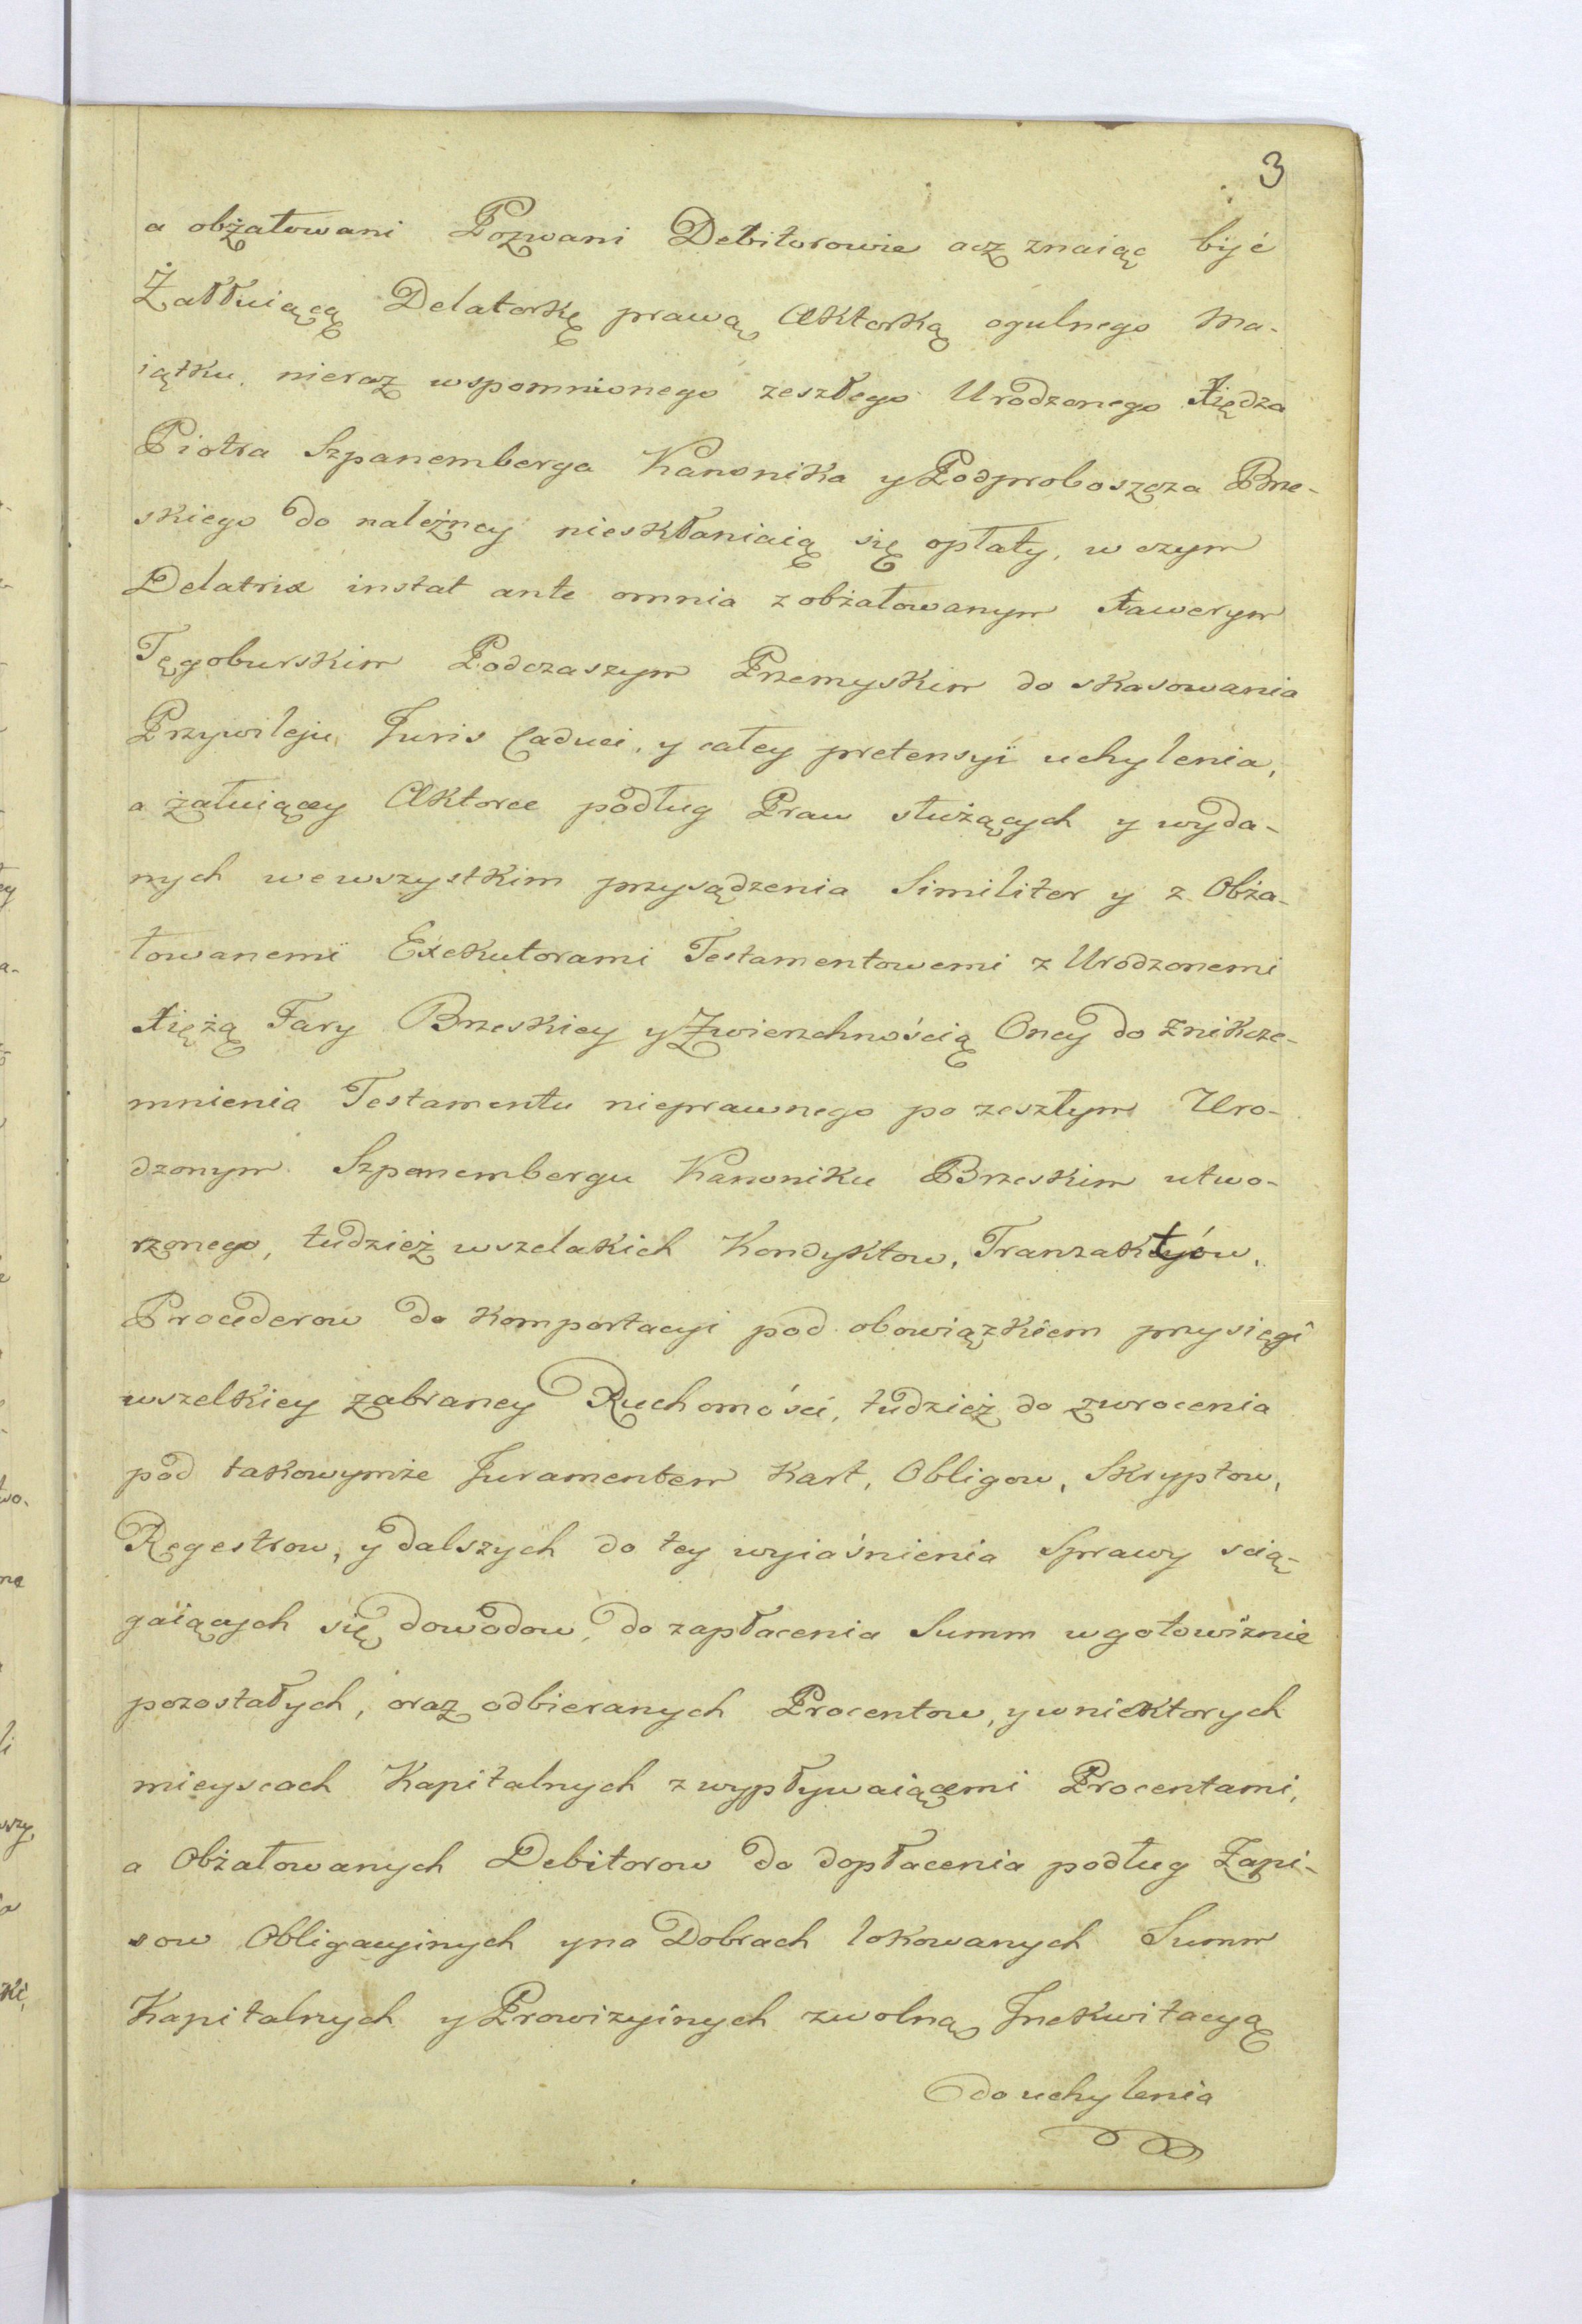 3
a obżałowani Pozwani Debitorowie acz znaiąc być
Żałłuiącą Delatorkę prawą Aktorką ogulnego Ma-
iątku, nieraz wspomnionego zeszłego Urodzonego Xiędza
Piotra Szpanemberga Kanonika y Podproboszcza Brze-
skiego do należney nieskłaniaią się opłaty, w czym
Delatrix instat ante omnia z obżałowanym Xawerym
Tęgoburskim Podczaszym Przemyskim do skasowania
Przywileju Juris Caduci, y całey pretensyi uchylenia,
a żałuiącey Aktorce podług Praw służących y wyda-
nych wewszystkim przysądzenia Similiter y z Obża-
łowanemi Exekutorami Testamentowemi z Urodzonemi
Xiężą Fary Brzeskiey y Zwierzchnością Oney do znikcze-
mnienia Testamentu nieprawnego po zeszłym Uro-
dzonym Szpanembergu Kanoniku Brzeskim utwo-
rzonego, tudzież wszelakich Kondyktow, Tranzaktyów,
Procederow do komportacyi pod obowiązkiem przysięgi
wszelkiey zabraney Ruchomości, tudzież do zwrocenia
pod takowymże Juramentem Kart, Obligow, Skryptow,
Regestrow, y dalszych do tey wyiaśnienia Sprawy scią-
gaiących się dowodow, do zapłacenia Summ w gotowiznie
pozostałych, oraz odbieranych Procentow, y w niektorych
mieyscach Kapitalnych z wypływaiącemi Procentami,
a Obżałowanych Debitorow do dopłacenia podług Zapi-
sow Obligacyinych y na Dobrach lokowanych Summ
Kapitalnych y Prowizyinych z wolną Inekwitacyą
do uchylenia